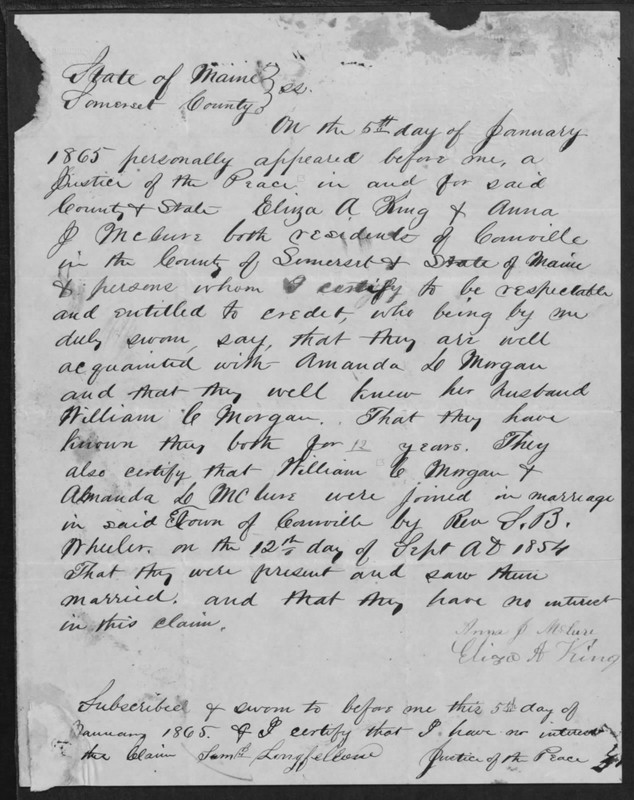 State of Maine } ss.
Somerset County }
On the 5th day of January
1865 personally appeared before me, a
Justice of the Peace in and for said
County & State Eliza A King & Anna
J McLure both residents of Cornville
in the County of Somerset & State of Maine
& persons whom I certify to be respectable
and entitled to credit, who being by me
duly sworn, say, that they are well
acquainted with Amanda L Morgan
and that they well knew her husband
William C Morgan. That they have
known they both for 12 years. They
also certify that William C Morgan &
Amanda L McLure were joined in marriage
in said Town of Cornville by Rev S. B.
Wheeler. on the 12th day of Sept AD 1854
That they were present and saw them
married. and that they have no interest
in this claim.
Anna J McLure
Eliza A King
Subscribed & sworn to before me this 5th day of
January 1865. & I certify that I have no interest
the Claim Saml Longfellow Justice of the Peace